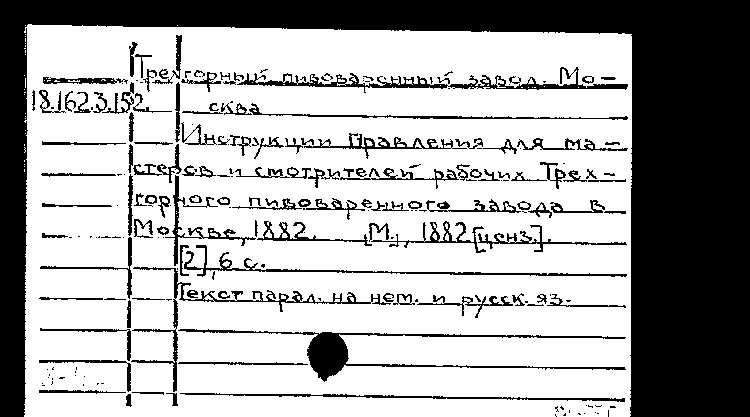 Трехгорный пивоваренный завод. Мо-
18.162.3.152. сква
Инструкции Правления для ма-
стеров и смотрителей рабочих Трех-
горного пивоваренного завода в
Москве, 1882. [М.], 1882 [ценз.].
[2], 6 с.
Текст парал. на нем. и русск. яз.